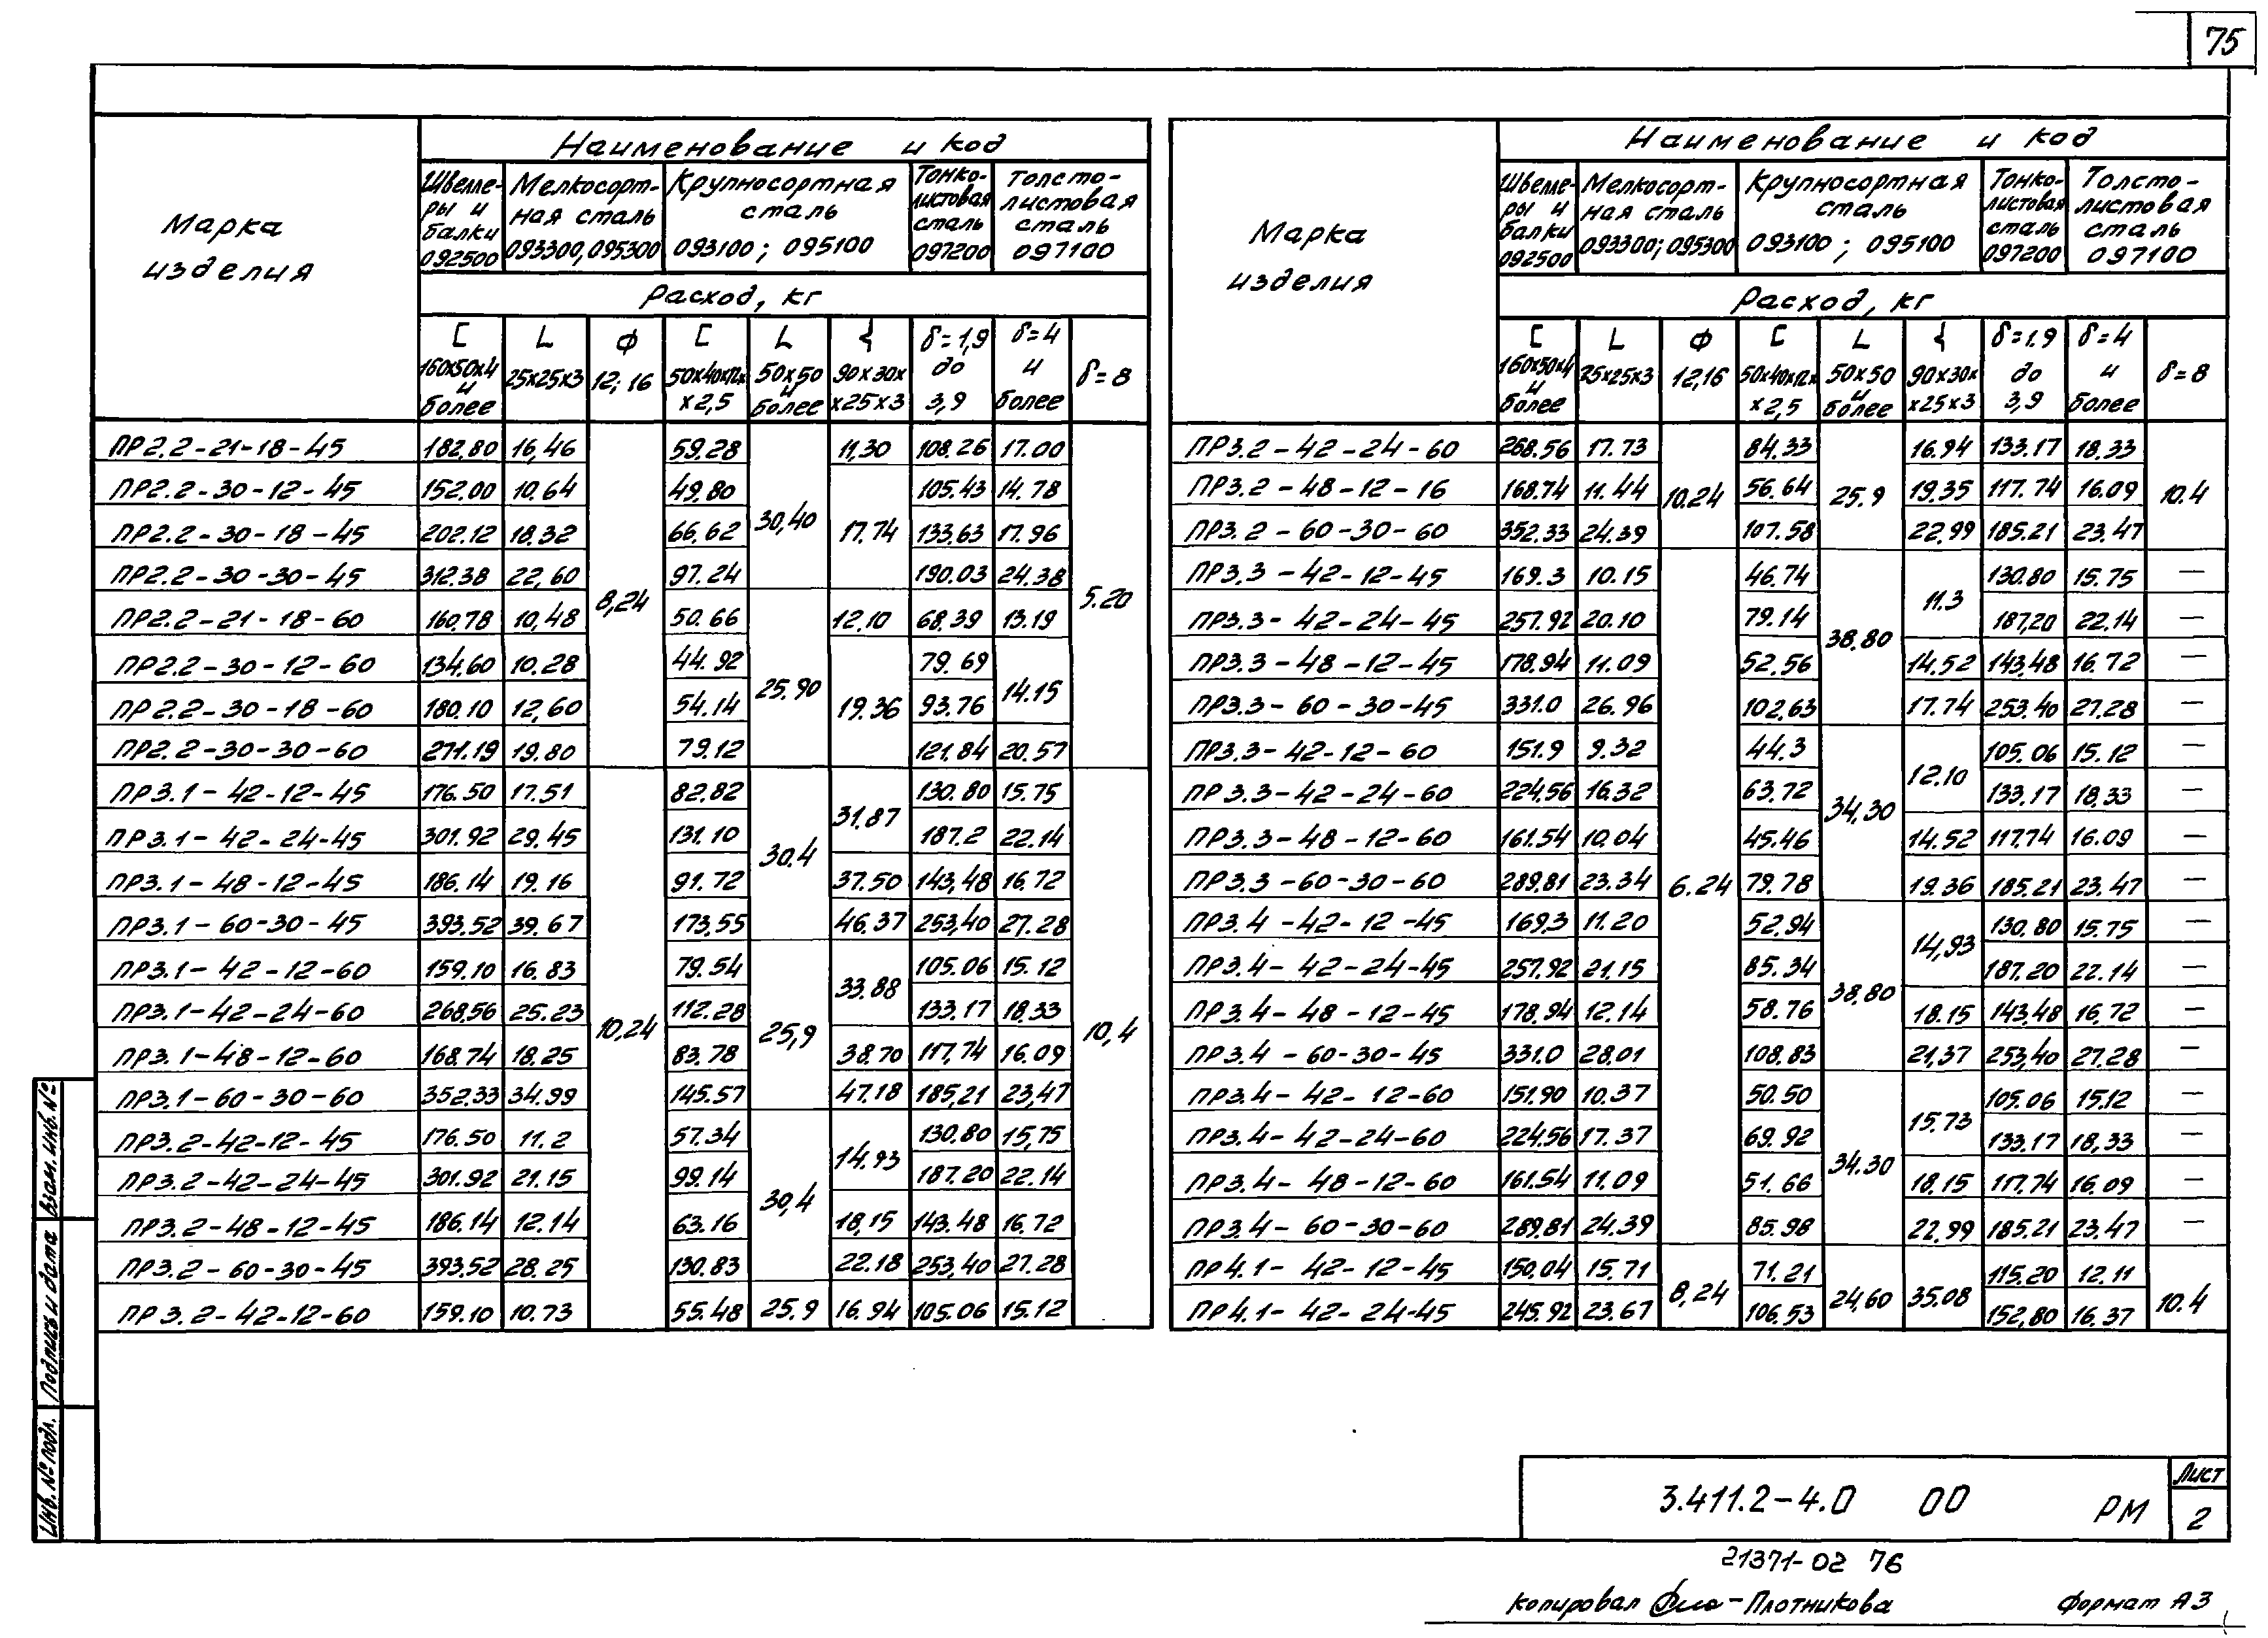 75
Марка изделия
Наименование и код
Швелле-ры и балки 092500
Мелкосорт-ная сталь 093300, 095300
Крупносортная сталь 093100; 095100
Тонко-листовая сталь 097200
Толсто-листовая сталь 097100
Расход, кг
[ 160х50х4 и более
L 25х25х3
ф 12; 16
[ 50х40х12х х2,5
L 50х50 и более
{ 90х30х х25х3
δ=1,9 до 3,9
δ=4 и более
δ=8
ПР2.2-21-18-45 182.80 16,46 8,24 59.28 30,40 11,30 108.26 17.00 5.20
ПР2.2-30-12-45 152.00 10,64 49.80 17.74 105.43 14.78
ПР2.2-30-18-45 202.12 18.32 66.62 133.63 17.96
ПР2.2-30-30-45 312.38 22,60 97.24 190.03 24.38
ПР2.2-21-18-60 160.78 10,48 50.66 25.90 12.10 68.39 13.19
ПР2.2-30-12-60 134.60 10.28 44.92 19.36 79.69 14.15
ПР2.2-30-18-60 180.10 12,60 54.14 93.76
ПР2.2-30-30-60 271.19 19.80 79.12 121.84 20.57
ПР3.1-42-12-45 176.50 17.51 10,24 82.82 30.4 31.87 130.80 15.75 10,4
ПР3.1-42-24-45 301.92 29.45 131.10 187.2 22.14
ПР3.1-48-12-45 186.14 19.16 91.72 37.50 143,48 16.72
ПР3.1-60-30-45 393.52 39.67 173.55 46.37 253,40 27.28
ПР3.1-42-12-60 159.10 16.83 79.54 25,9 33.88 105.06 15.12
ПР3.1-42-24-60 268.56 25.23 112.28 133.17 18.33
ПР3.1-48-12-60 168.74 18.25 83.78 38.70 117,74 16.09
ПР3.1-60-30-60 352.33 34.99 145.57 47.18 185,21 23,47
ПР3.2-42-12-45 176.50 11.2 57.34 30,4 14.93 130.80 15,75
ПР3.2-42-24-45 301.92 21.15 99.14 187.20 22.14
ПР3.2-48-12-45 186.14 12.14 63.16 18,15 143.48 16.72
ПР3.2-60-30-45 393.52 28.25 130.83 22.18 253,40 27.28
ПР3.2-42-12-60 159.10 10.73 55.48 25.9 16.94 105.06 15.12
Марка изделия
Наименование и код
Швелле-ры и балки 092500
Мелкосорт-ная сталь 093300; 095300
Крупносортная сталь 093100; 095100
Тонко-листовая сталь 097200
Толсто-листовая сталь 097100
Расход, кг
[ 160х50х4 и более
L 25х25х3
ф 12,16
[ 50х40х12х х2,5
L 50х50 и более
{ 90х30х х25х3
δ=1.9 до 3,9
δ=4 и более
δ=8
ПР3.2-42-24-60 268.56 17.73 10.24 84.33 25.9 16.94 133.17 18.33 10.4
ПР3.2-48-12-16 168.74 11.44 56.64 19.35 117.74 16.09
ПР3.2-60-30-60 352.33 24.39 107.58 22,99 185.21 23.47
ПР3.3-42-12-45 169.3 10.15 6.24 46.74 38,80 11.3 130.80 15.75 —
ПР3.3-42-24-45 257.92 20.10 79.14 187,20 22.14 —
ПР3.3-48-12-45 178.94 11.09 52.56 14.52 143,48 16.72 —
ПР3.3-60-30-45 331.0 26.96 102.63 17.74 253.40 27.28 —
ПР3.3-42-12-60 151.9 9.32 44.3 34,30 12.10 105.06 15.12 —
ПР3.3-42-24-60 224.56 16.32 63.72 133,17 18.33 —
ПР3.3-48-12-60 161.54 10.04 45.46 14.52 117.74 16.09 —
ПР3.3-60-30-60 289.81 23.34 79.78 19.36 185.21 23.47 —
ПР3.4-42-12-45 169.3 11.20 52.94 38,80 14,93 130.80 15.75 —
ПР3.4-42-24-45 257.92 21.15 85.34 187.20 22.14 —
ПР3.4-48-12-45 178.94 12.14 58.76 18.15 143.48 16,72 —
ПР3.4-60-30-45 331.0 28.01 108.83 21,37 253,40 27.28 —
ПР3.4-42-12-60 151.90 10.37 50.50 34.30 15.73 105.06 15.12 —
ПР3.4-42-24-60 224.56 17.37 69.92 133.17 18,33 —
ПР3.4-48-12-60 161.54 11.09 51.66 18.15 117.74 16.09 —
ПР3.4-60-30-60 289.81 24.39 85.98 22.99 185.21 23.47 —
ПР4.1-42-12-45 150.04 15.71 8,24 71.21 24,60 35,08 115.20 12.11 10.4
ПР4.1-42-24-45 245.92 23.67 106.53 152,80 16.37
Взам. инв. №
Подпись и дата
Инв. № подл.
3.411.2-4.0 00 РМ
Лист
2
21371-02 76
Копировал Плотникова Формат А3